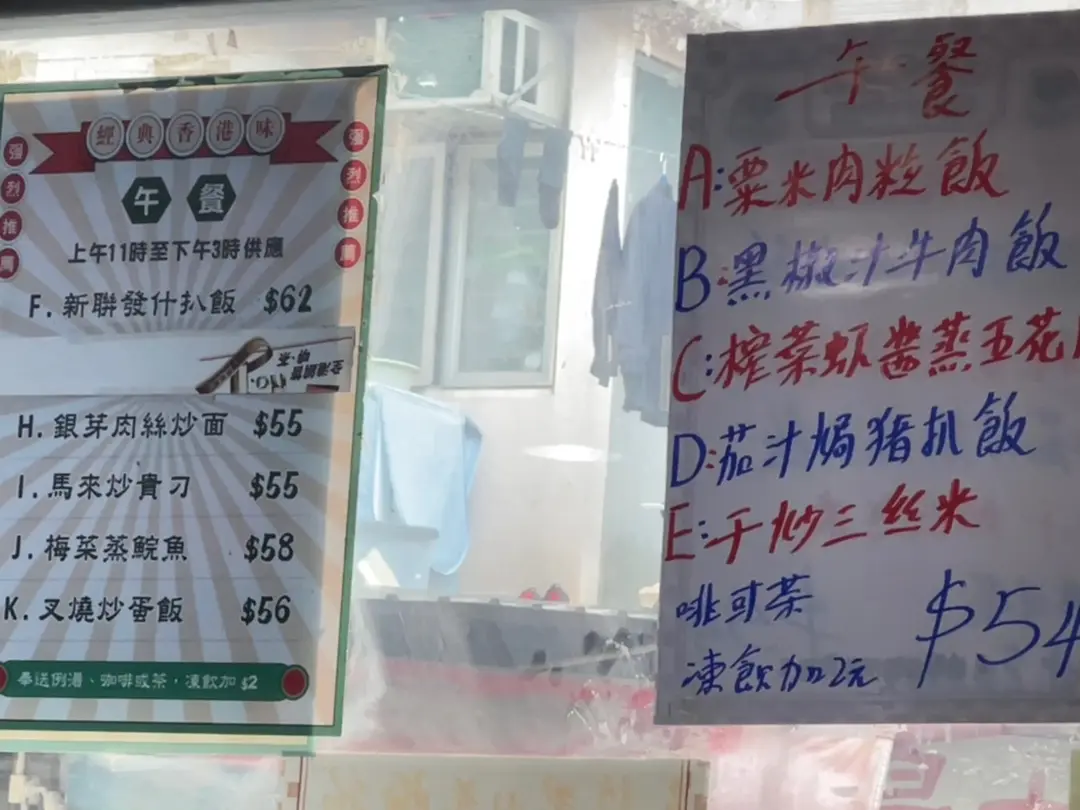 經典香港味
强烈推薦
强烈推薦
午餐
上午11時至下午3時供應
F. 新聯發什扒飯 $62
H. 銀芽肉絲炒面 $55
I. 馬來炒貴刁 $55
J. 梅菜蒸鯇魚 $58
K. 叉燒炒蛋飯 $56
奉送例湯、咖啡或茶，凍飲加 $2
午·餐
A:粟米肉粒飯
B:黑椒汁牛肉飯
C:榨菜蝦醬蒸五花
D:茄汁焗豬扒飯
E:干炒三丝米
啡或茶
凍飲加2元
$54